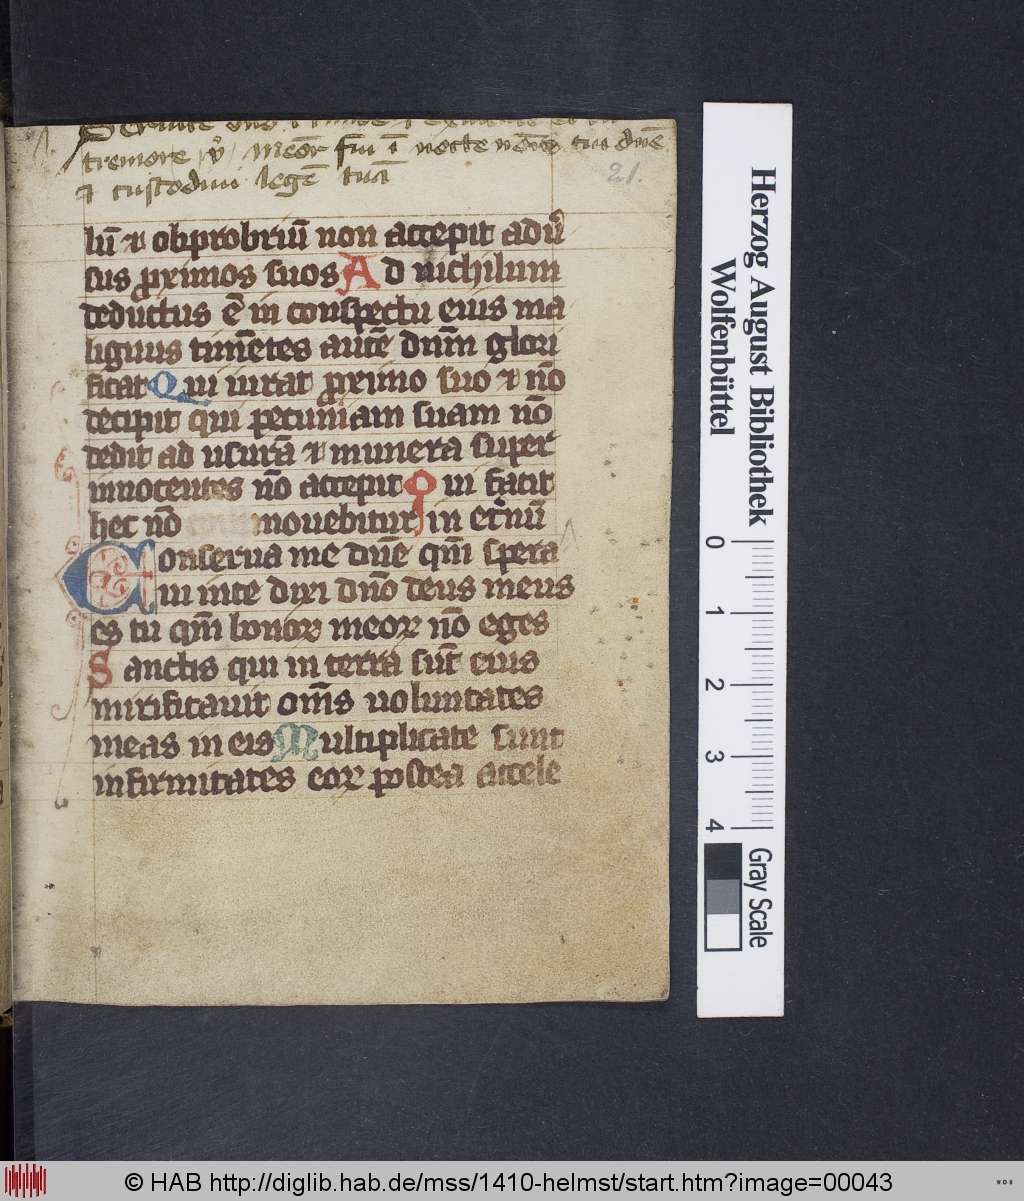 Seruite dno i timore et exultate ei cu
tremore ꝟ Meor fui ī nocte noīs tui dnē
⁊ custodiui legē tuā
21.
lū ⁊ obprobriū non accepit adū
sus proximos suos Ad nichilum
deductus ē in conspectu eius ma
lignus timētes autē dn̄m glori
ficat Qui iurat proximo suo ⁊ nō
decipit qui pecuniam suam nō
dedit ad usurā ⁊ munera super
innocentes nō accepit Qui facit
hec nō mouebitur in et̄nū
Conserua me dn̄e qm̄ spera
ui inte dixi dn̄o deus meus
es tu qm̄ bonoꝝ meoꝝ nō eges
Sanctis qui in terra sūt eius
mirificauit om̄s uoluntates
meas in eis Multiplicate sunt
infirmitates eoꝝ postea accele
Herzog August Bibliothek
Wolfenbüttel
0 1 2 3 4
Gray Scale
© HAB http://diglib.hab.de/mss/1410-helmst/start.htm?image=00043